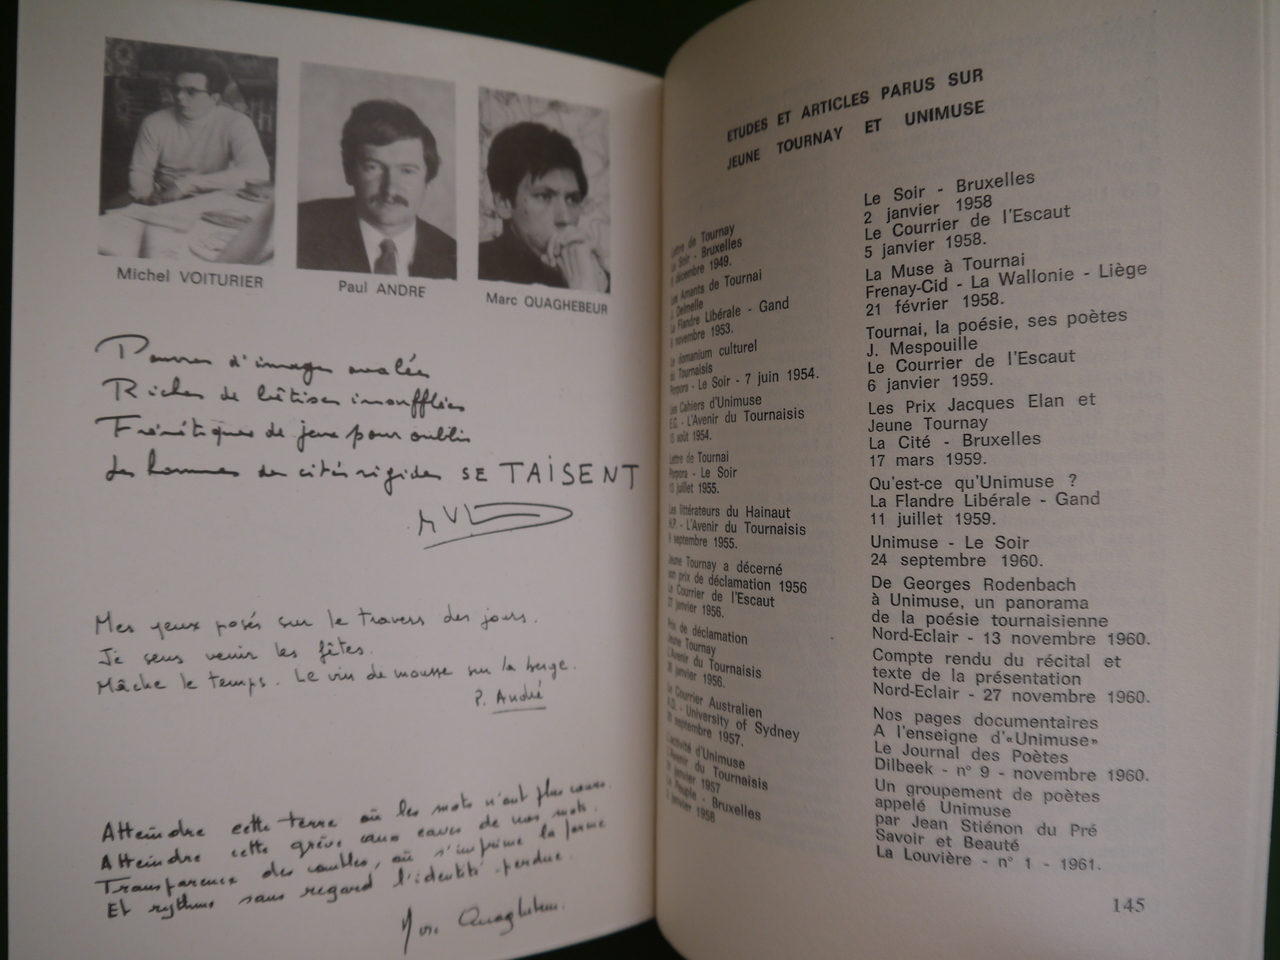 Michel VOITURIER
Paul ANDRE
Marc QUAGHEBEUR
Pauvres d'images avalées
Riches de bêtises insufflées
Frénétiques de jeux pour oublis
Les hommes des cités rigides SE TAISENT
MV
Mes yeux posés sur le travers des jours.
Je sens venir les fêtes.
Mâche le temps. Le vin de mousse sur la berge.
P. André
Atteindre cette terre où les mots n'ont plus cours.
Atteindre cette grève aux eaux de nos mots.
Transparence des combles, où s'imprime la forme
Et rythme sans regard l'identité perdue.
Marc Quaghebeur
ETUDES ET ARTICLES PARUS SUR
JEUNE TOURNAY ET UNIMUSE
Lettre de Tournay
Le Soir - Bruxelles
décembre 1949.
Les Amants de Tournai
J. Delmelle
La Flandre Libérale - Gand
novembre 1953.
Le domanium culturel
du Tournaisis
Perpora - Le Soir - 7 juin 1954.
Les Cahiers d'Unimuse
E.G. - L'Avenir du Tournaisis
15 août 1954.
Lettre de Tournai
Perpora - Le Soir
13 juillet 1955.
Les littérateurs du Hainaut
H.P. - L'Avenir du Tournaisis
9 septembre 1955.
Jeune Tournay a décerné
son prix de déclamation 1956
Le Courrier de l'Escaut
27 janvier 1956.
Prix de déclamation
Jeune Tournay
L'Avenir du Tournaisis
janvier 1956.
Le Courrier Australien
A.D. - University of Sydney
septembre 1957.
L'activité d'Unimuse
L'Avenir du Tournaisis
janvier 1957
Le Peuple - Bruxelles
janvier 1958
Le Soir - Bruxelles
2 janvier 1958
Le Courrier de l'Escaut
5 janvier 1958.
La Muse à Tournai
Frenay-Cid - La Wallonie - Liège
21 février 1958.
Tournai, la poésie, ses poètes
J. Mespouille
Le Courrier de l'Escaut
6 janvier 1959.
Les Prix Jacques Elan et
Jeune Tournay
La Cité - Bruxelles
17 mars 1959.
Qu'est-ce qu'Unimuse ?
La Flandre Libérale - Gand
11 juillet 1959.
Unimuse - Le Soir
24 septembre 1960.
De Georges Rodenbach
à Unimuse, un panorama
de la poésie tournaisienne
Nord-Eclair - 13 novembre 1960.
Compte rendu du récital et
texte de la présentation
Nord-Eclair - 27 novembre 1960.
Nos pages documentaires
A l'enseigne d'«Unimuse»
Le Journal des Poètes
Dilbeek - n° 9 - novembre 1960.
Un groupement de poètes
appelé Unimuse
par Jean Stiénon du Pré
Savoir et Beauté
La Louvière - n° 1 - 1961.
145